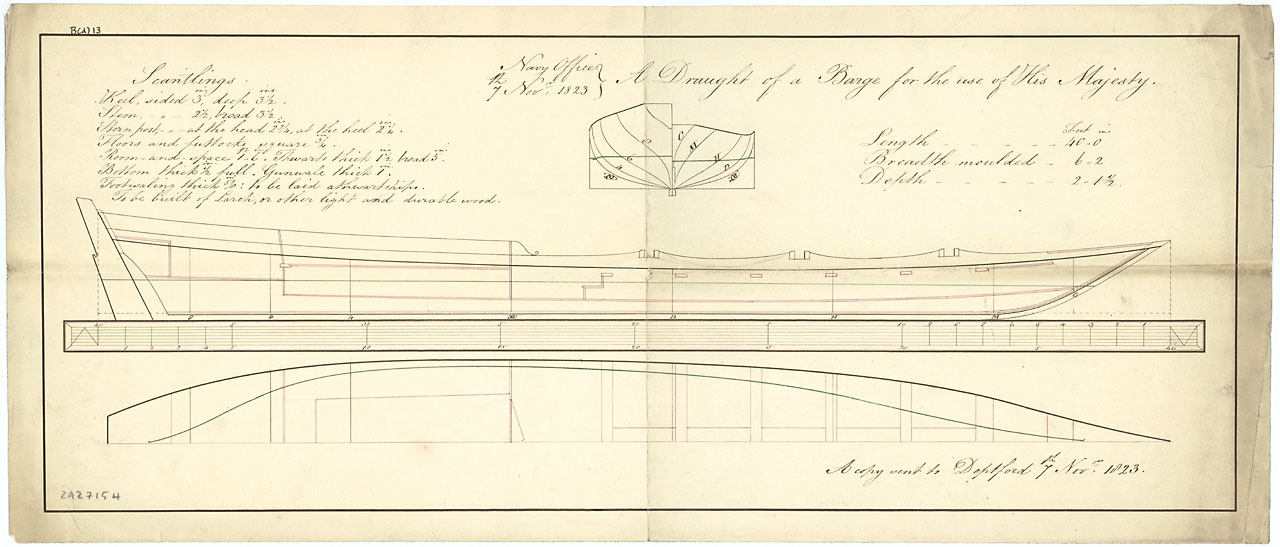 B(A)13
Scantlings.
Keel, sided 3, in deep 3½. in
Stem, - „ - 2½, broad 3½.
Stern post, - „ - at the head 2¾, at the heel 2¼. in
Floors and futtocks square ¾. in
Room and space 1 ft 6. Thwarts thick 1½ broad 8.
Bottom thick ½ full. Gunwale thick 1.
Footwaling thick ⅜: to be laid athwartships.
To be built of Larch, or other light and durable wood.
Navy Office
7th Novr. 1823
A Draught of a Barge for the use of His Majesty.
Feet in
Length - - - - - 40 - 0
Breadth moulded - 6 - 2
Depth - - - - - 2 - 1½.
C
M
H
D
A copy sent to Deptford 7th Novr. 1823.
2AZ7154